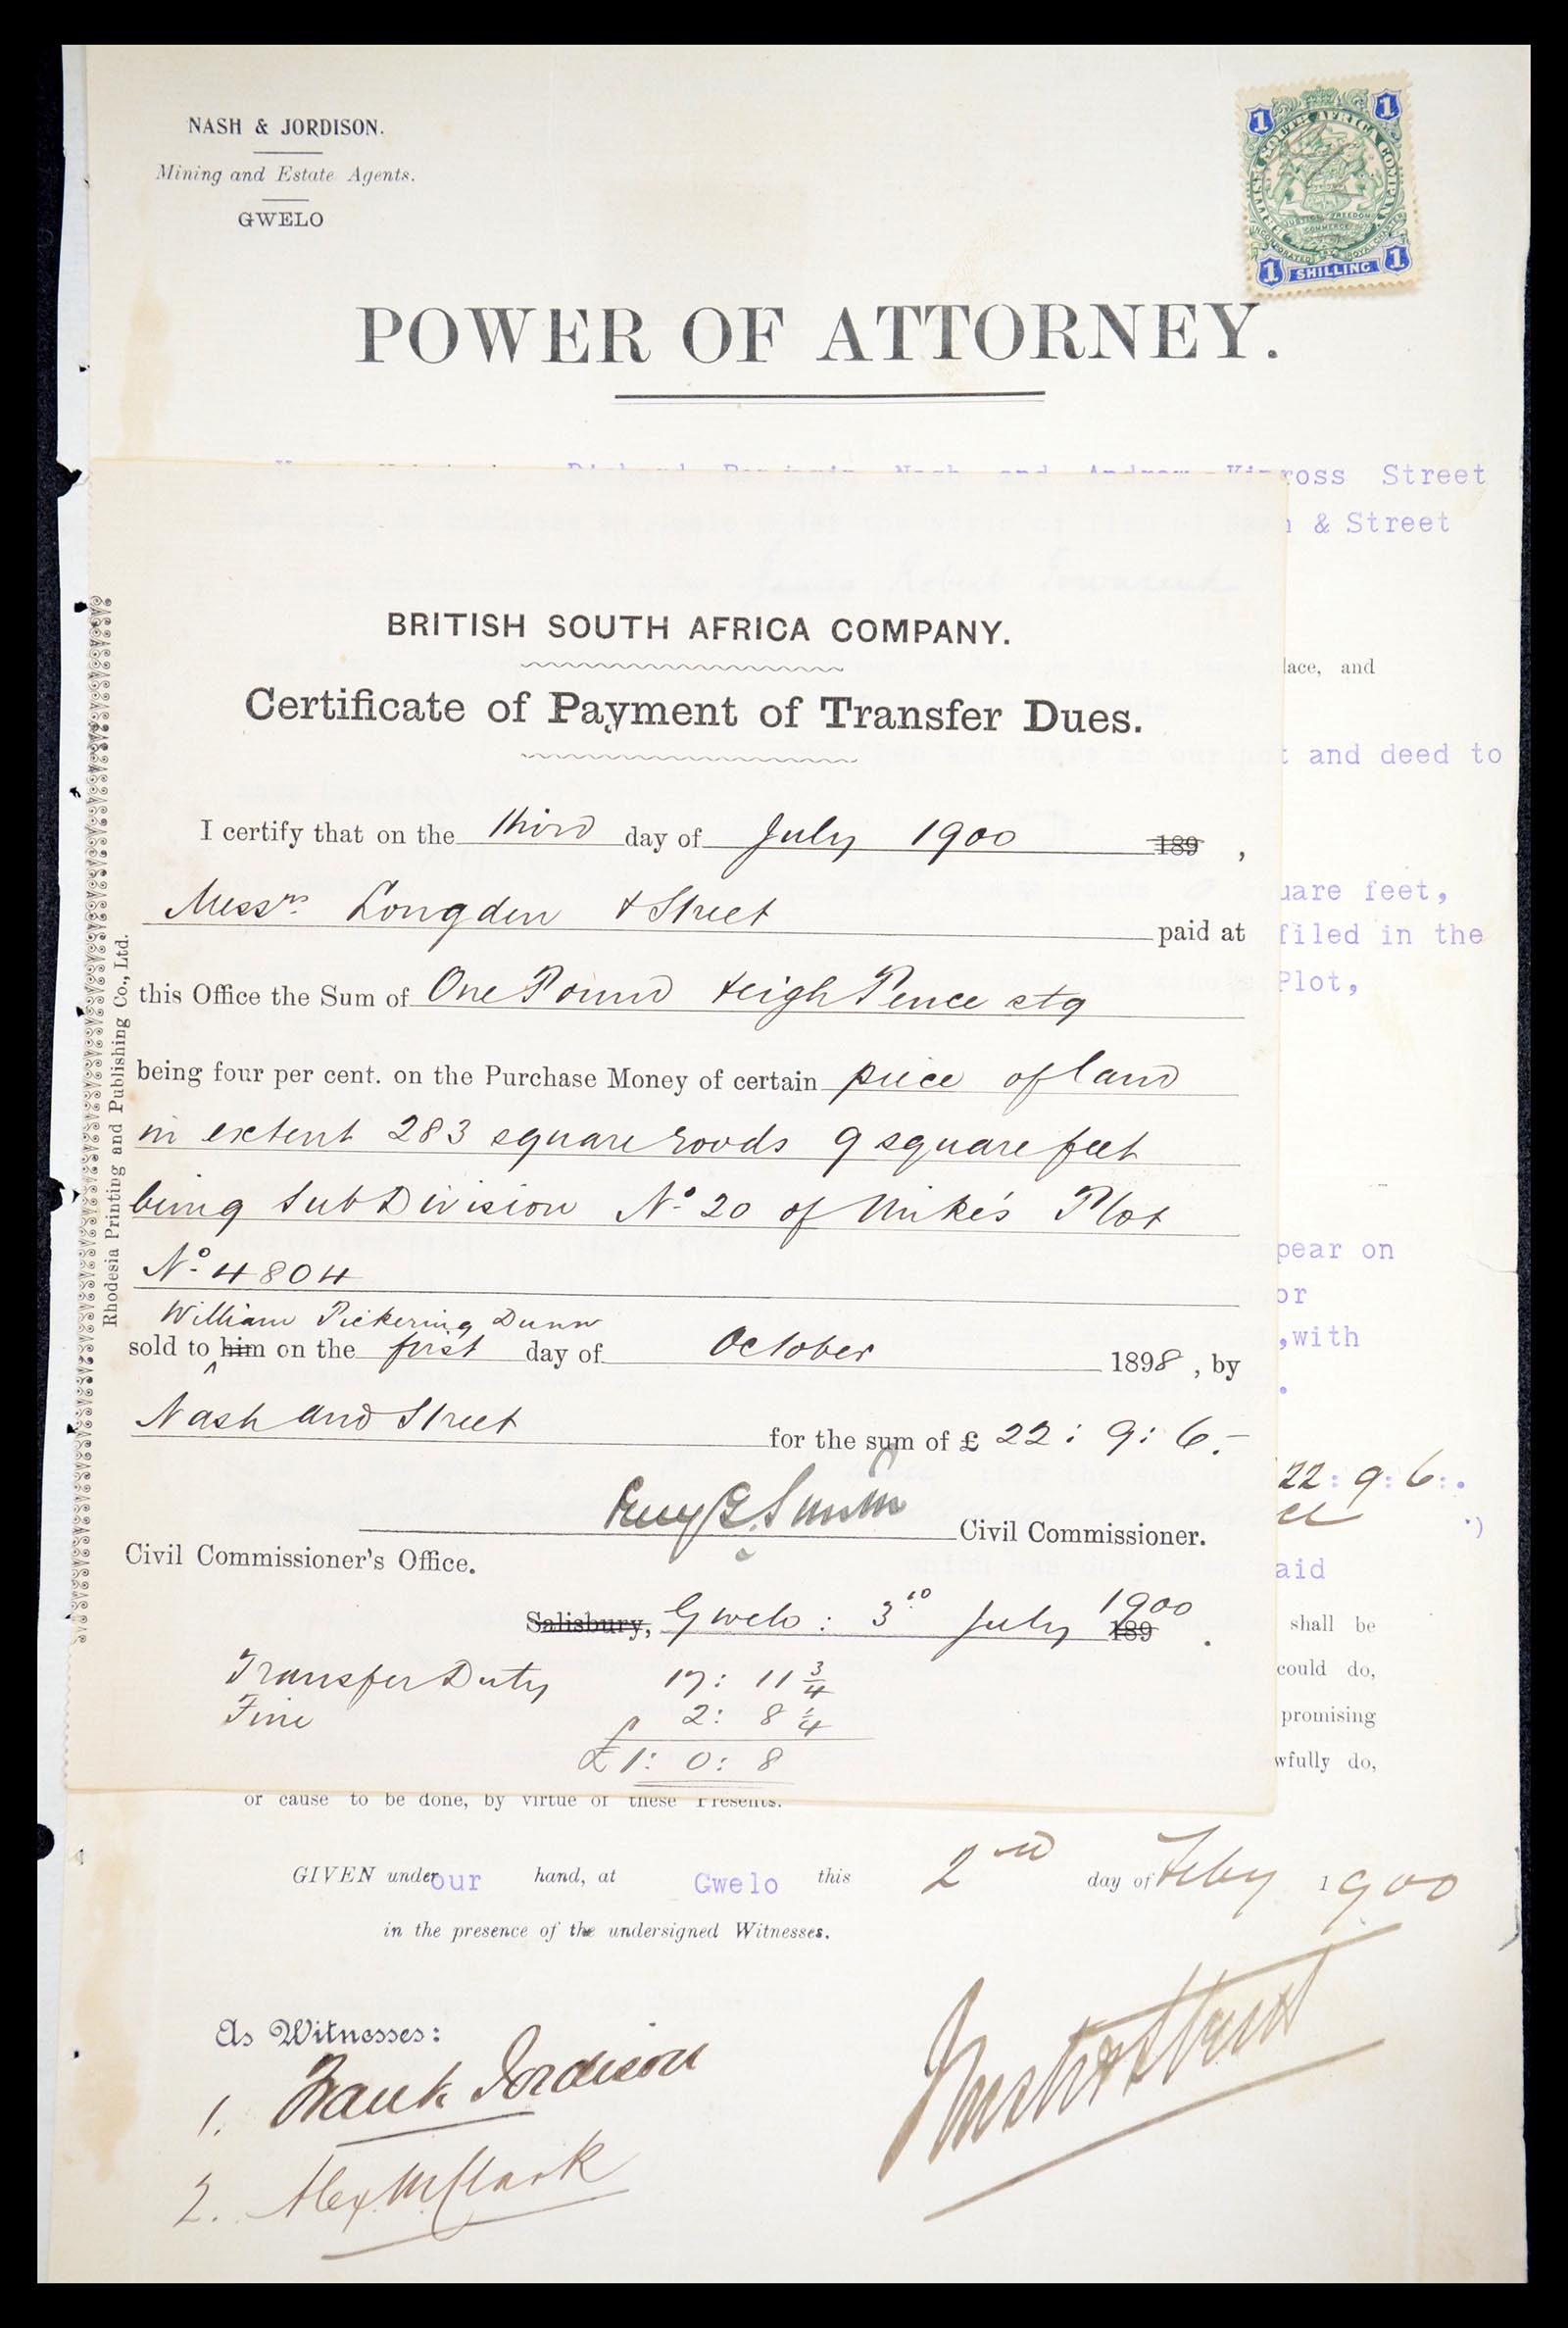 NASH & JORDISON.
Mining and Estate Agents.
GWELO
1 1
BRITISH SOUTH AFRICA COMPANY
JUSTICE FREEDOM
COMMERCE
INCORPORATED BY ROYAL CHARTER
1 SHILLING 1
POWER OF ATTORNEY.
Richard Benjamin Nash and Andrew Kinross Street
& Street
lace, and
and deed to
uare feet,
filed in the
Plot,
pear on
or
,with
22:9:6:.
aid
shall be
could do,
promising
wfully do,
BRITISH SOUTH AFRICA COMPANY.
Certificate of Payment of Transfer Dues.
I certify that on the third day of July 1900 189 ,
Messrs. Longden & Street paid at
this Office the Sum of One Pound & eigh Pence stg
being four per cent. on the Purchase Money of certain piece of land
in extent 283 square roods 9 square feet
being SubDivision No 20 of Mike's Plot
No 4804
William Pickering Dunn
sold to him on the first day of October 1898, by
Nash and Street for the sum of £ 22:9:6.-
Civil Commissioner.
Civil Commissioner's Office.
Salisbury, Gwelo: 3rd July 1900 189 .
Transfer Duty 17: 11 3/4
Fine 2: 8 1/4
£1: 0: 8
Rhodesia Printing and Publishing Co., Ltd.
or cause to be done, by virtue of these Presents.
GIVEN under our hand, at Gwelo this 2nd day of Feby 1900
in the presence of the undersigned Witnesses.
As Witnesses:
1. Frank Jordison
2. Alex McClark
Nash & Street